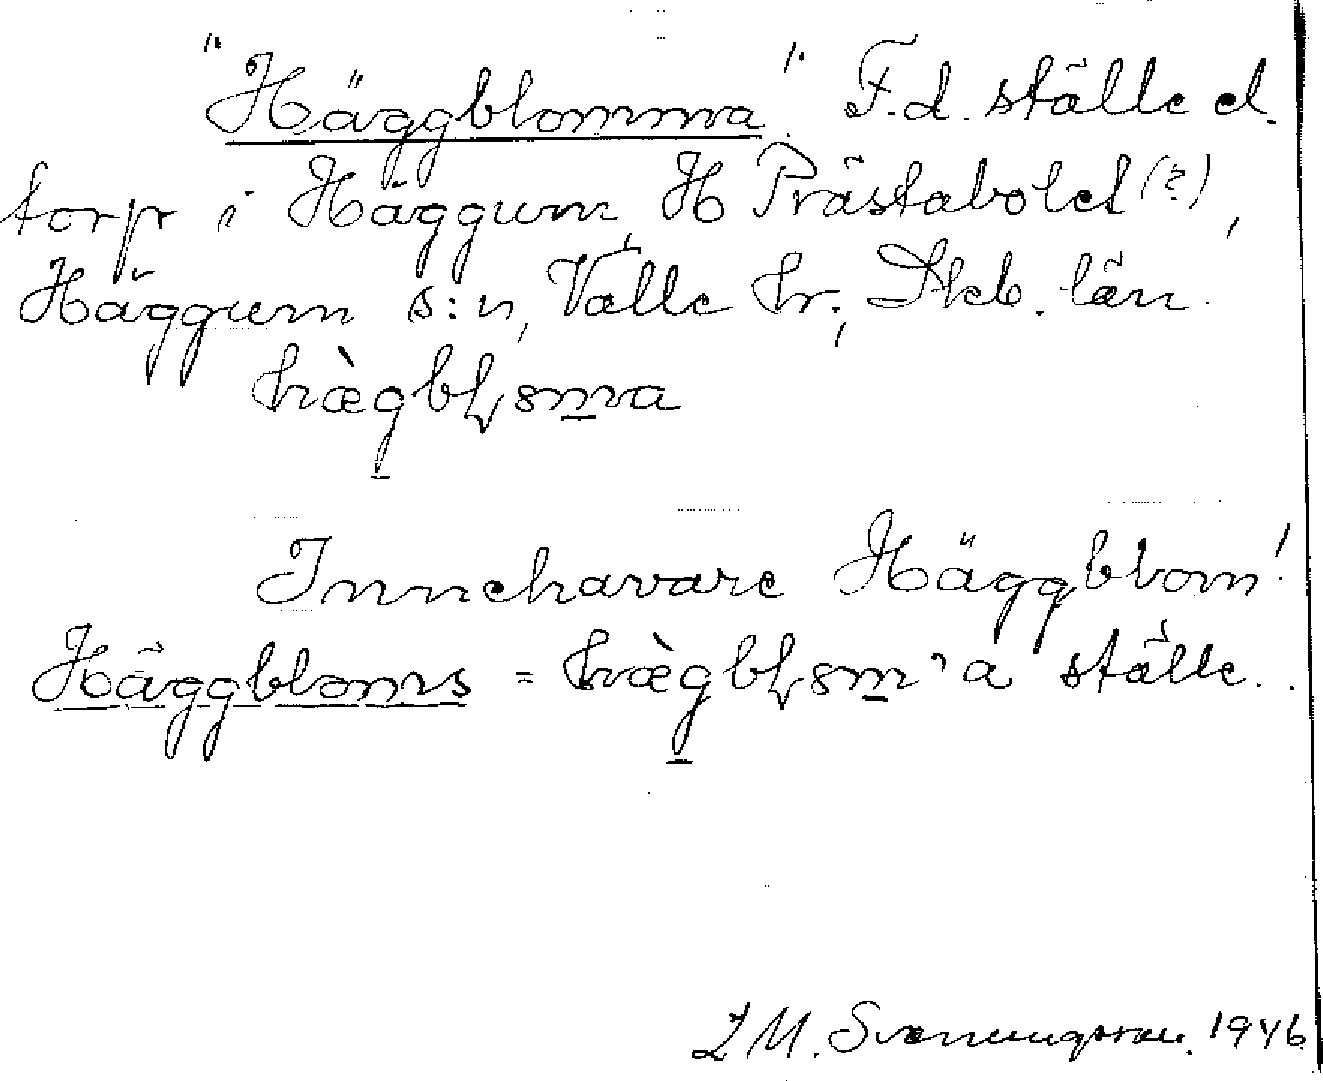 "Häggblomma". F.d. ställe el.
torp i Häggum, H Prästabolet (?),
Häggum s:n, Valle hr., Skb. län.
hæ̀gbɽǫma
Innehavare Häggblom!
Häggbloms = hæ̀gbɽǫm`a ställe.
Svenningsson. 1946